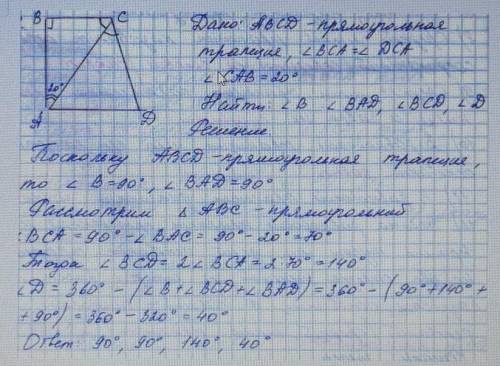 B C
20°
A D
Дано: ABCD - прямоугольная
трапеция, ∠BCA = ∠DCA
∠CAB = 20°
Найти: ∠B ∠BAD, ∠BCD, ∠D
Решение
Поскольку ABCD - прямоугольная трапеция,
то ∠B = 90°, ∠BAD = 90°
Рассмотрим △ ABC - прямоугольный
BCA = 90° - ∠BAC = 90° - 20° = 70°
Тогда ∠BCD = 2∠BCA = 2·70° = 140°
∠D = 360° - (∠B + ∠BCD + ∠BAD) = 360° - (90° + 140° +
+ 90°) = 360° - 320° = 40°
Ответ: 90°, 90°, 140°, 40°